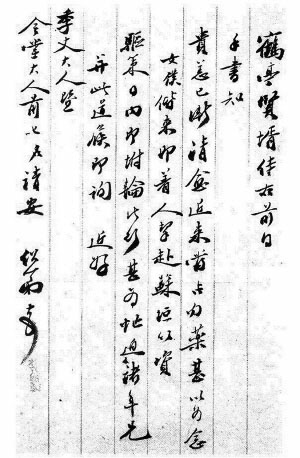 鶴亭賢壻侍右前日
手書知
貴恙已漸愈近來當占勿藥甚以為念
女僕僱來即著人赴蘇垣以資
驅策日內即附輪北行甚為忙迫諸年兄
此道候即詢 近好
季丈大人暨
令堂大人前乞名請安 紹第